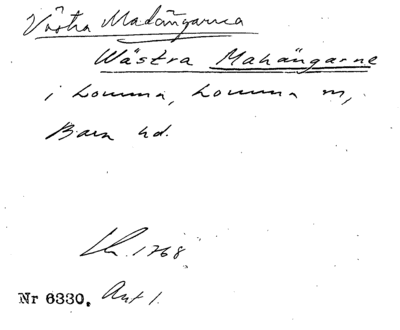 Västra Madängarna
Wästra Mahängarne
i Lomma, Lomma sn,
Bara hd.
1768
Nr 6330. Akt 1.